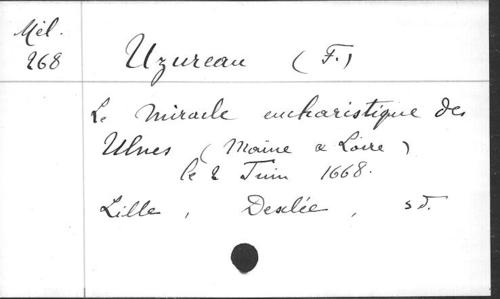 Mél.
268
Uzureau (F.)
Le Miracle eucharistique des
Ulmes (Maine & Loire)
le 2 Juin 1668.
Lille, Desclée, s d.